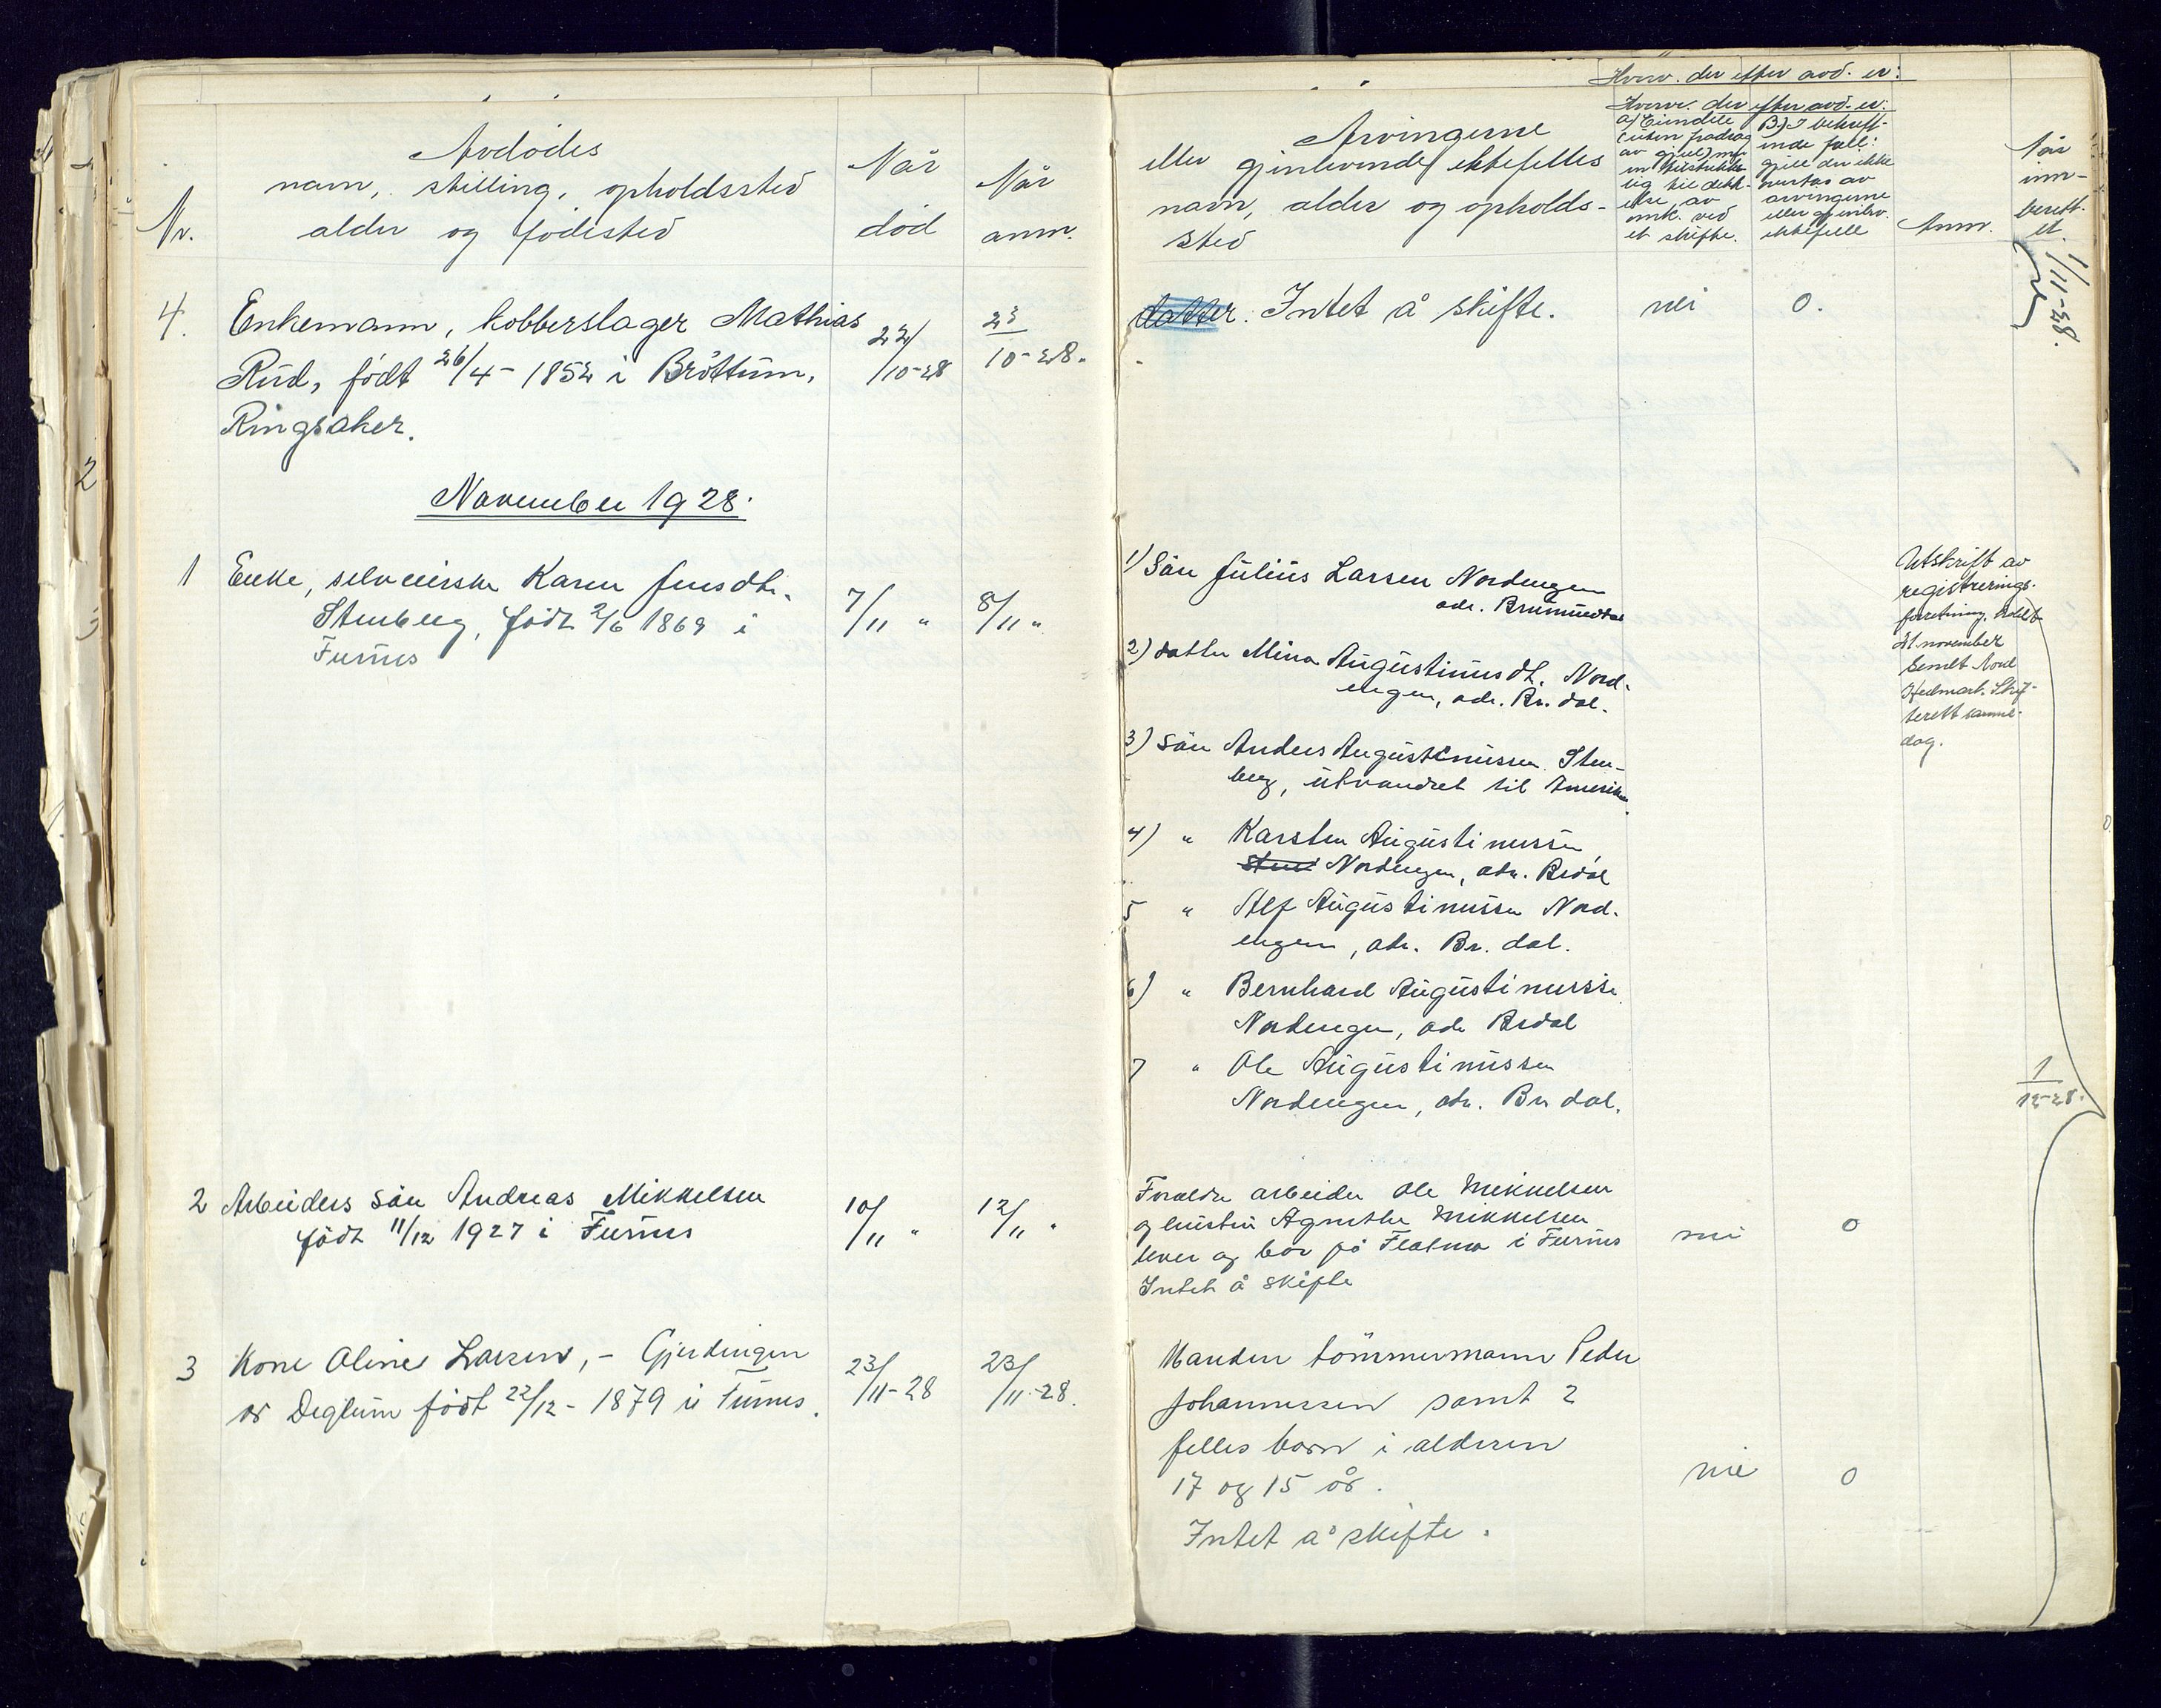 Avdødes
navn, stilling, opholdssted
Nr. alder og fødested
Når
død
Når
anm.
4. Enkemann, kobberslager Mathias
Rud, født 26/4 - 1852 i Brøttum,
Ringsaker.
22/10-28
23/10-28.
November 1928.
1 Enke, selveierske Karen Jensdtr.
Stenberg, født 2/6 1869 i
Furnes
7/11 "
8/11 "
2 Arbeiders søn Andreas Mikkelsen
født 11/12 1927 i Furnes
10/11 "
12/11 "
3 Kone Oline Larsen, - Gjerdingen
av Deglum født 22/12 - 1879 i Furnes.
23/11-28
23/11-28.
Hvorv. der efter avd. er:
Arvingerne
eller gjenlevende ektefelles
navn, alder og opholds-
sted
Hvorv. der efter avd. er:
a) Eiendele
(uten fradrag
av gjeld) men
utilstrekke-
lig til dekk-
else av
omk. ved
et skifte.
B) I bekreft-
ende fall:
gjeld der ikke
av
arvingerne
eller gjenlev.
ektefelle
Anm.
Når
inn-
berett-
et.
datter. Intet å skifte.
nei
0.
1/11-28.
1) Søn Julius Larsen Nordengen
adr. Brumunddal
2) datter Mina Augustinusdt. Nord-
engen, adr. Br. dal.
3) Søn Anders Augustinussen Sten-
berg, utvandret til Amerika
4) " Karsten Augustinussen,
Sten Nordengen, adr. Brdal
5 " Alf Augustinussen Nord-
engen, adr. Br. dal.
6) " Bernhard Augustinussen
Nordengen, adr Brdal
7 " Ole Augustinussen
Nordengen, adr. Br dal.
Utskrift av
registrerings-
forretning holdt
21 november
sendt Nord
Hedmark Skif-
terett samme
dag.
1/12-28.
Foreldre arbeider Ole Mikkelsen
og hustru Agnethe Mikkelsen
lever og bor på Flatmo i Furnes
Intet å skifte
nei
0
Manden tømmermann Peder
Johannessen samt 2
felles barn i alderen
17 og 15 år.
Intet å skifte.
nei
0